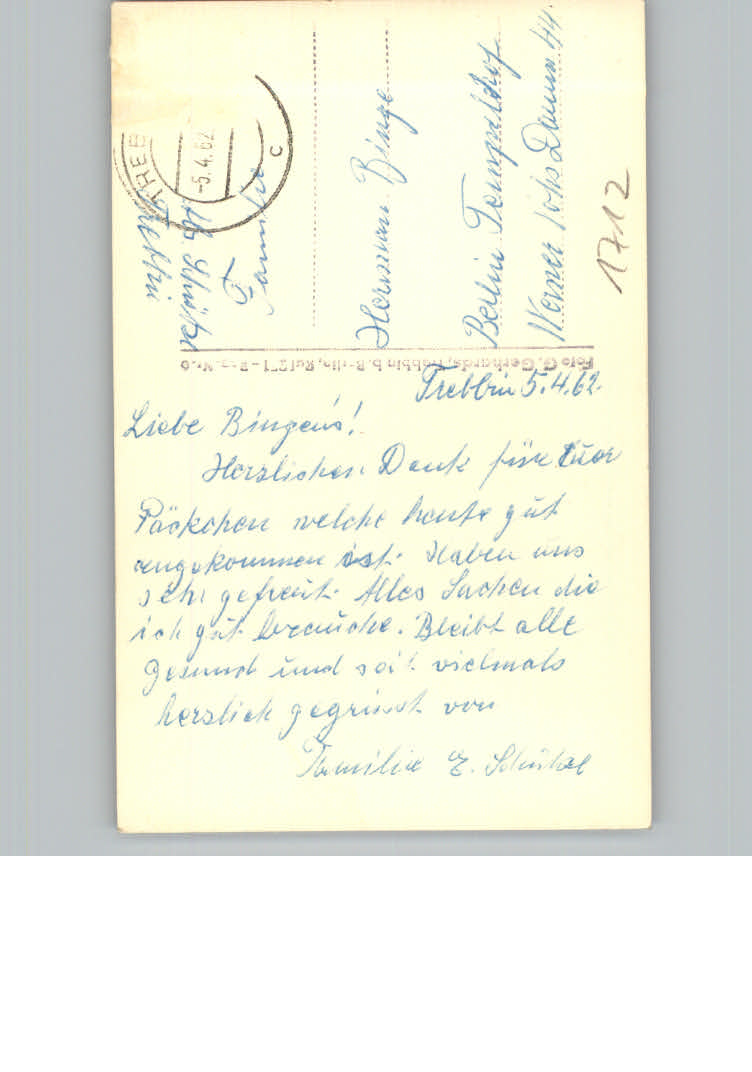 Trebbin 5.4.62.
Liebe Bingen's!
Herzlichen Dank für Euer
Päckchen welche heute gut
angekommen ist. Haben uns
sehr gefreut. Alles Sachen die
ich gut brauche. Bleibt alle
Gesund und seit vielmals
herzlich gegrüsst von
Familie E. Schütze
Familie
Hermann Binge
Berlin Tempelhof
Werner Voss Damm 44
1712
E. Schütze
Trebbin
TREB
-5.4.62
c
Foto G. Gerhards, Trebbin b. Berlin, Ruf 271 - Reg. Nr. 6